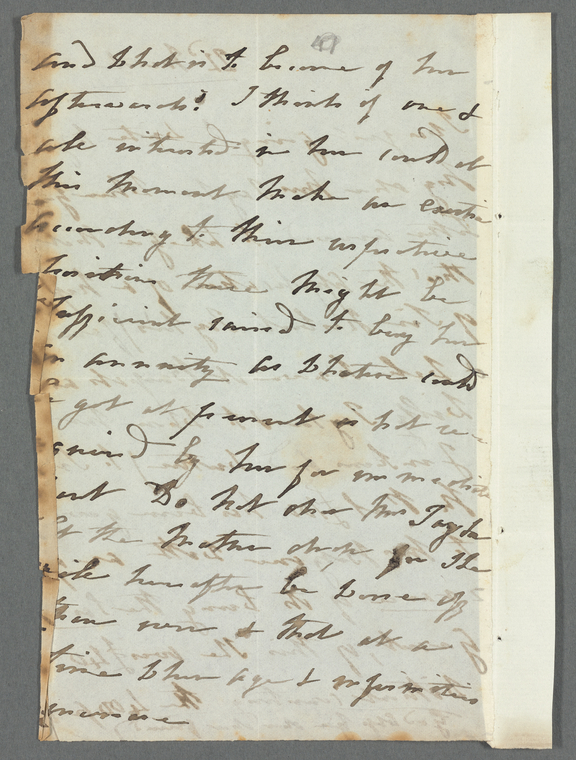 and what is to become of her
afterwards? I think if one &
all interested in her could at
this moment make an exertion
according to their respective
positions there might be
sufficient raised to buy her
an annuity as whatever could
be got at present is not re-
quired by her for immediate
want Do not allow Mrs Taylor
let the matter drop, for she
will hereafter be worse off
than ever & that at a
time when age & infirmities
increase